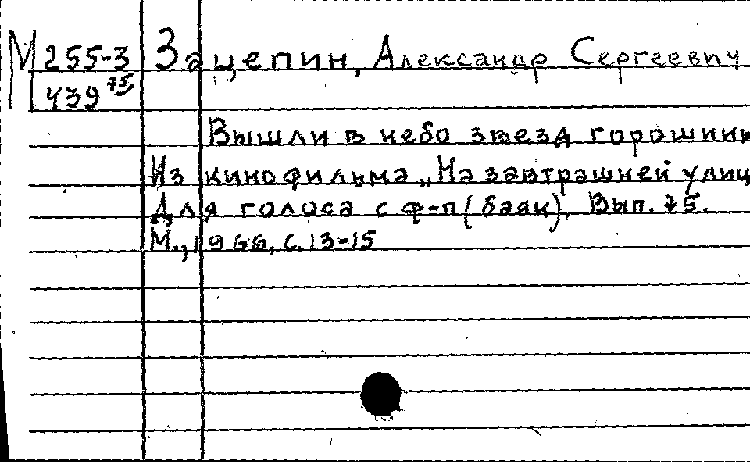 М 255-3 Зацепин, Александр Сергеевич
439 75
Вышли в небо звезд горошинк
Из кинофильма „На завтрашней улиц
Для голоса с ф-п (баян). Вып. 75.
М., 1966, с. 13-15